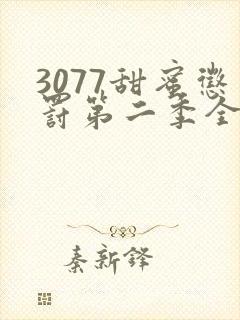 3077甜蜜惩
罚第二季全
秦新铎